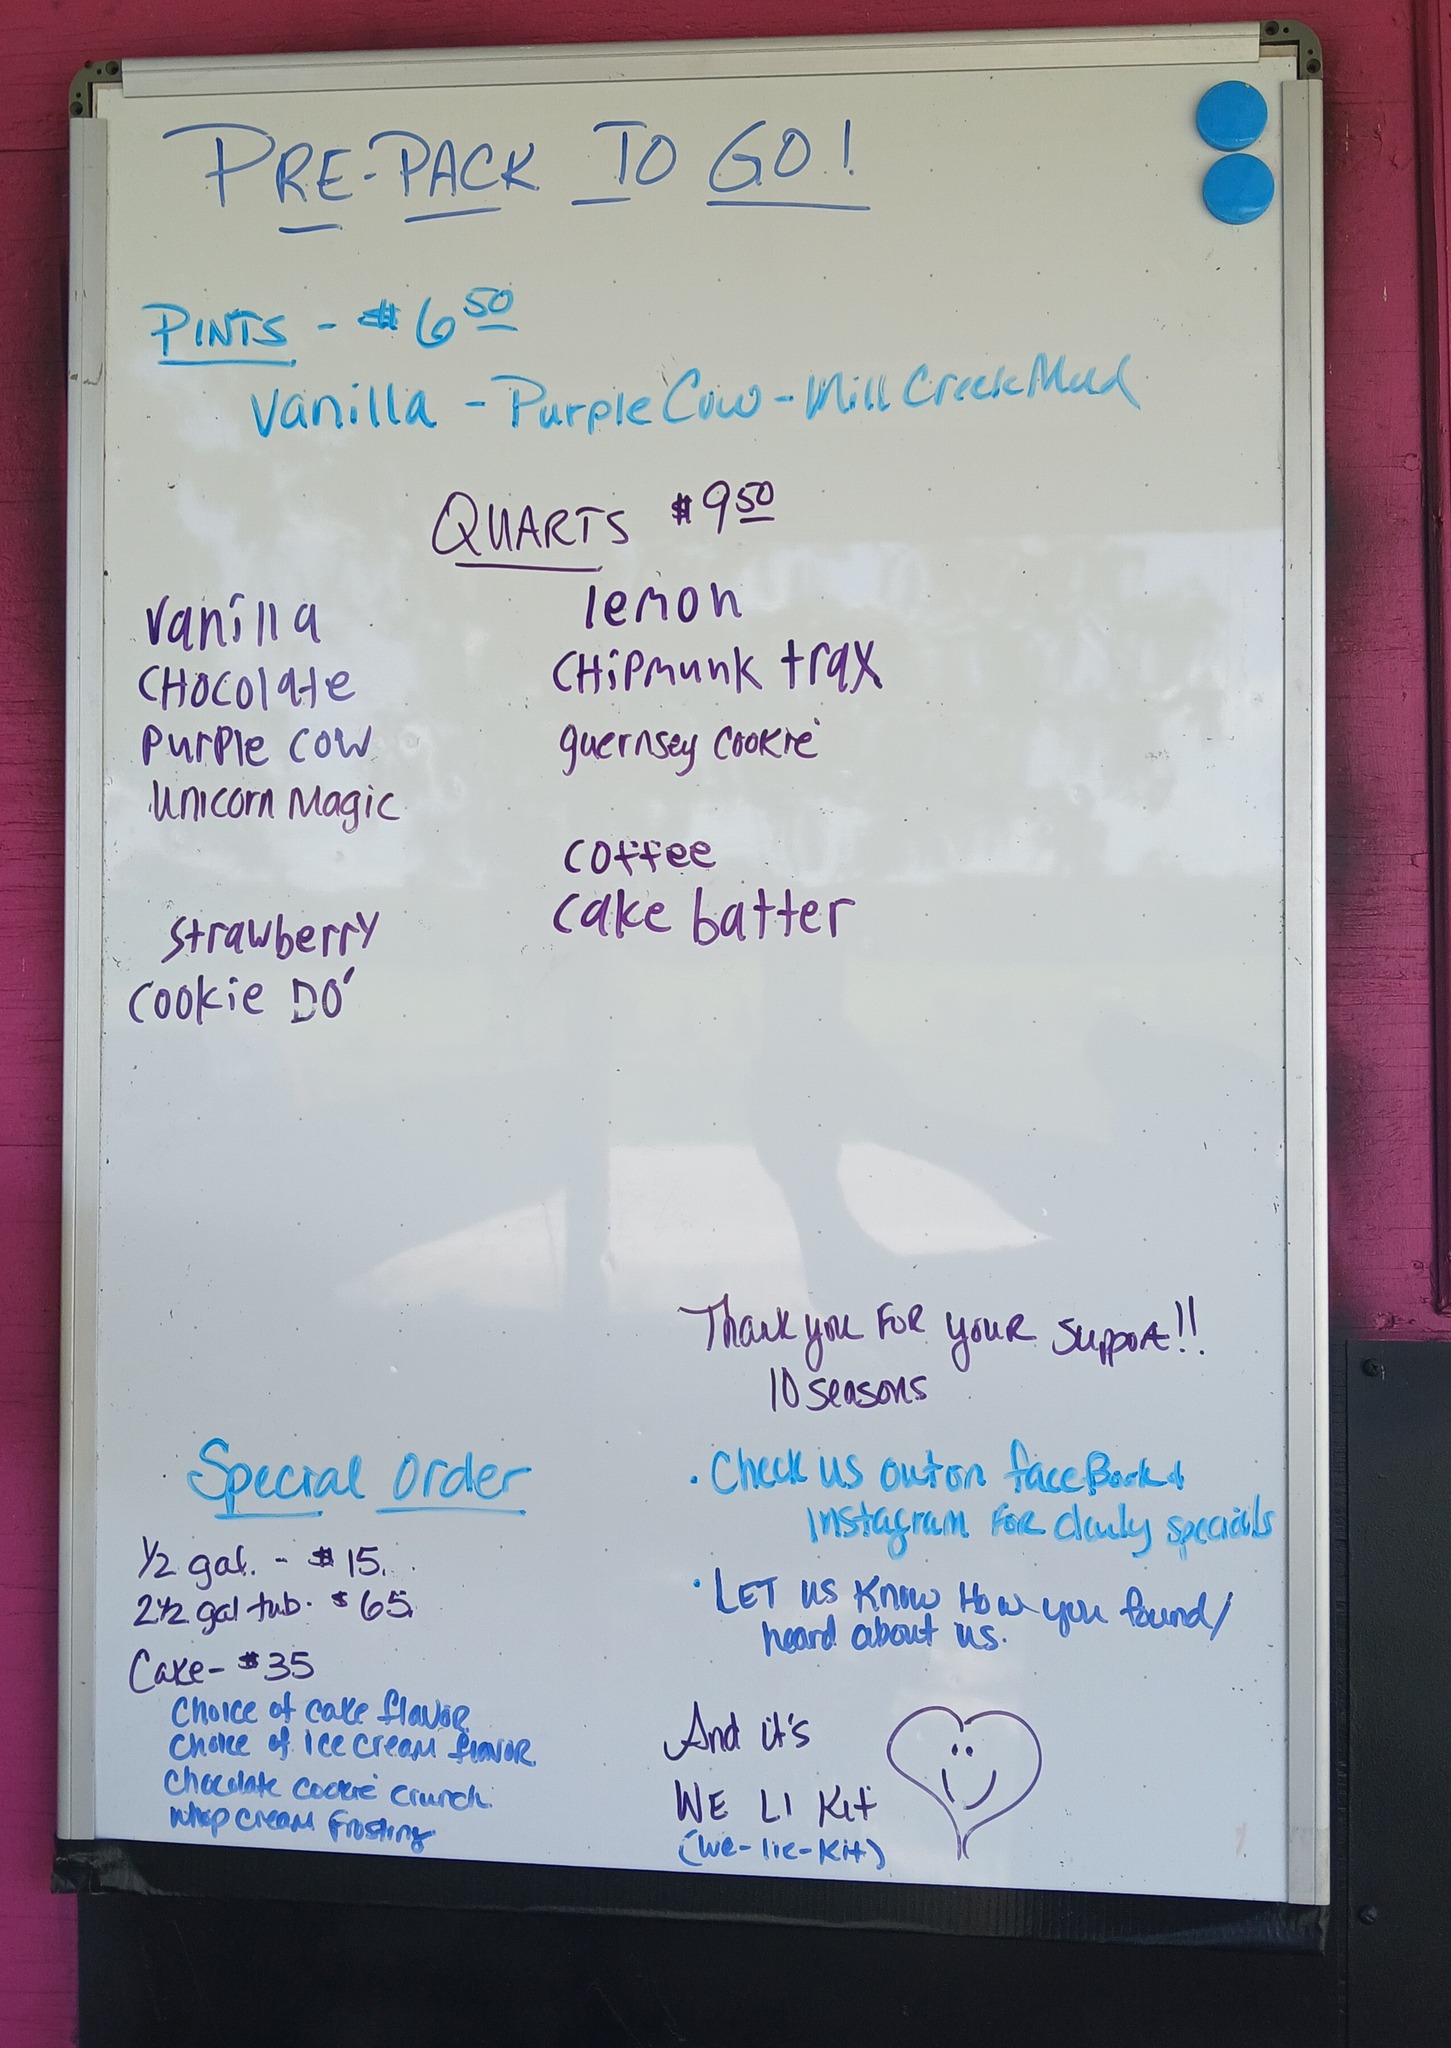 PRE-PACK TO GO!
PINTS - $6 50
Vanilla - Purple Cow - Mill Creek Mud
QUARTS $9 50
Vanilla
CHOCOlate
PurPle COW
Unicorn Magic
Strawberry
Cookie DO'
lemon
CHiPmunk trax
guernsey cookie
coffee
cake batter
Thank you FOR your support!!
10 seasons
Special Order
1/2 gal. - $15.
2 1/2 gal tub. $65.
Cake - $35
Choice of cake flavor
Choice of ice cream flavor
Chocolate cookie crunch
whip cream frosting
• Check us out on faceBook &
Instagram FOR daily specials
• LET us know How you found/
heard about us.
And it's
WE LI Kit
(we-lie-kit)